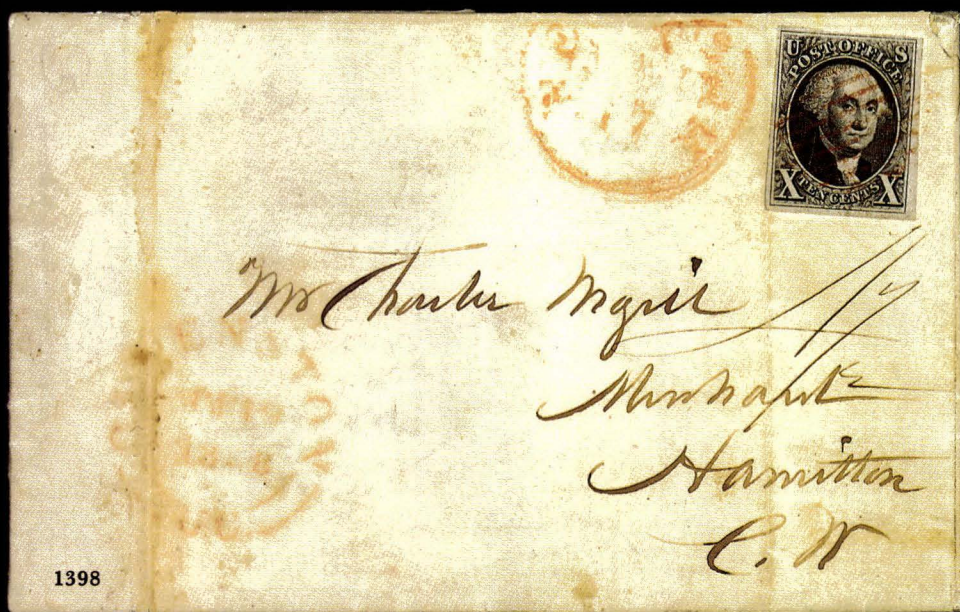 U S
POST OFFICE
X TEN CENTS X
17
Mr Charles Magill
Merchant
Hamilton
C. W
1398